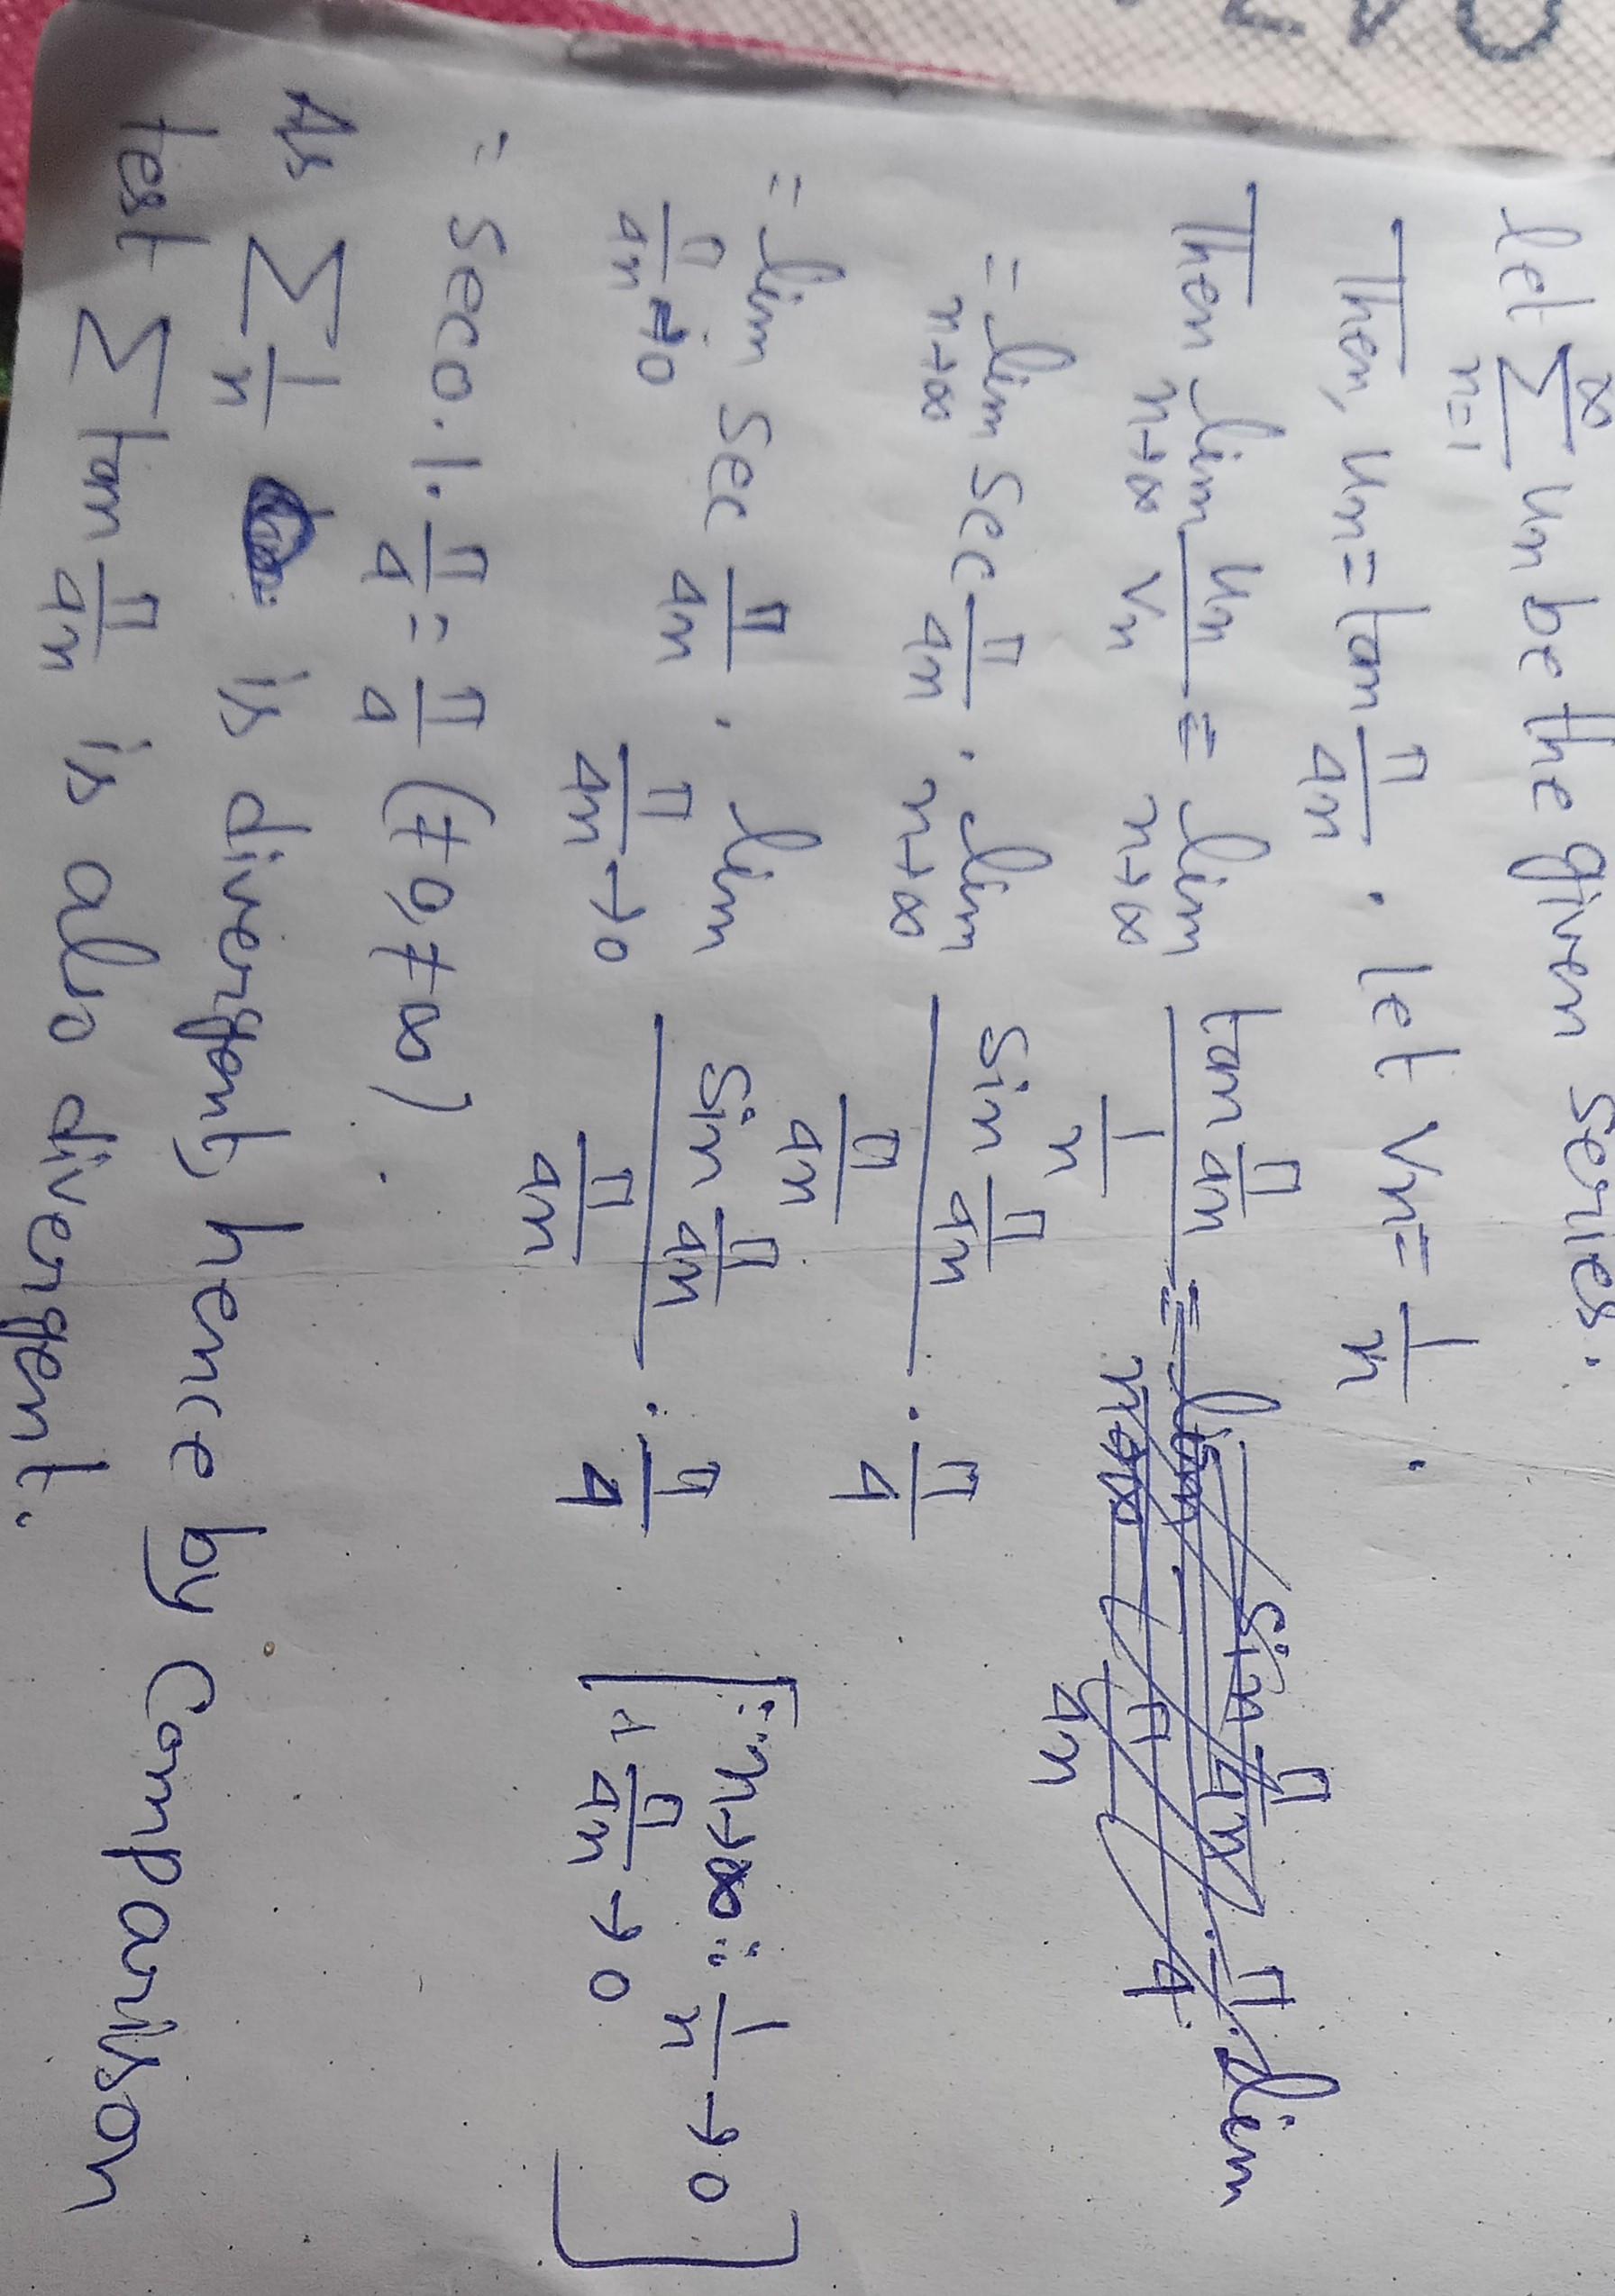 let ∑_{n=1}^{∞} un be the given series.
Then, un = tan π/4n . let vn = 1/n .
Then lim_{n→∞} un/vn = lim_{n→∞} (tan π/4n)/(1/n)
= lim_{n→∞} sec π/4n . lim_{n→∞} (sin π/4n)/(π/4n) . π/4
= lim_{π/4n→0} sec π/4n . lim_{π/4n→0} (sin π/4n)/(π/4n) . π/4 [∵ n→∞ ∴ 1/n → 0 ∴ π/4n → 0]
= sec 0 . 1 . π/4 = π/4 (≠0, ≠∞) .
As ∑ 1/n is divergent, hence by comparison
test ∑ tan π/4n is also divergent.